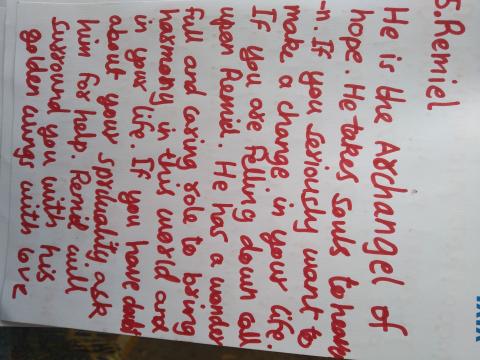 5. Remiel
He is the Archangel of
hope. He takes souls to heav
-n. If you seriously want to
make a change in your life.
If you are felling down call
upon Remiel. He has a wonder
full and caring role to bring
harmony in this world and
in your life. If you have doubt
about your sprituality ask
him for help. Remiel will
surround you with his
golden wings with love